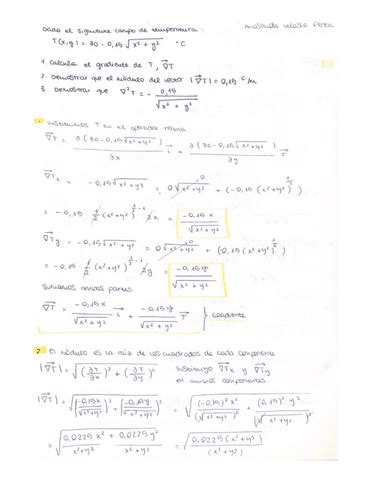 Dado el siguiente campo de temperatura:
T(x,y) = 30 - 0,15 √(x² + y²) °C
1. Calcula el gradiente de T, ∇T
2. Demostrar que el módulo del vector |∇T| = 0,15 °C/m
3. Demostrar que ∇²T = - 0,15 / √(x² + y²)
1. Sustituimos T en el operador nabla:
∇T = ∂(30 - 0,15√(x²+y²)) / ∂x i + ∂(30 - 0,15√(x²+y²)) / ∂y j
∇Tx = -0,15√(x²+y²) = 0√(x²+y²) + (-0,15 (x²+y²)^(1/2))
= -0,15 1/2 (x²+y²)^(1/2-1) 2x = -0,15 x / √(x²+y²)
∇Ty = -0,15√(x²+y²) = 0√(x²+y²) + (-0,15 (x²+y²)^(1/2))
= -0,15 1/2 (x²+y²)^(1/2-1) 2y = -0,15 y / √(x²+y²)
ambas partes
∇T = -0,15x / √(x²+y²) i + -0,15y / √(x²+y²) j } Gradiente
2. El módulo es la raíz de los cuadrados de cada componente
|∇T| = √((∂T/∂x)² + (∂T/∂y)²) Sustituyo ∇Tx y ∇Ty
en ambos componentes
|∇T| = √((-0,15x / √(x²+y²))² + (-0,15y / √(x²+y²))²) = √((-0,15)² x² / (√(x²+y²))² + (0,15)² y² / (√(x²+y²))²)
= √(0,0225 x² / x²+y² + 0,0225 y² / x²+y²) = √(0,0225 (x²+y²) / (x²+y²))